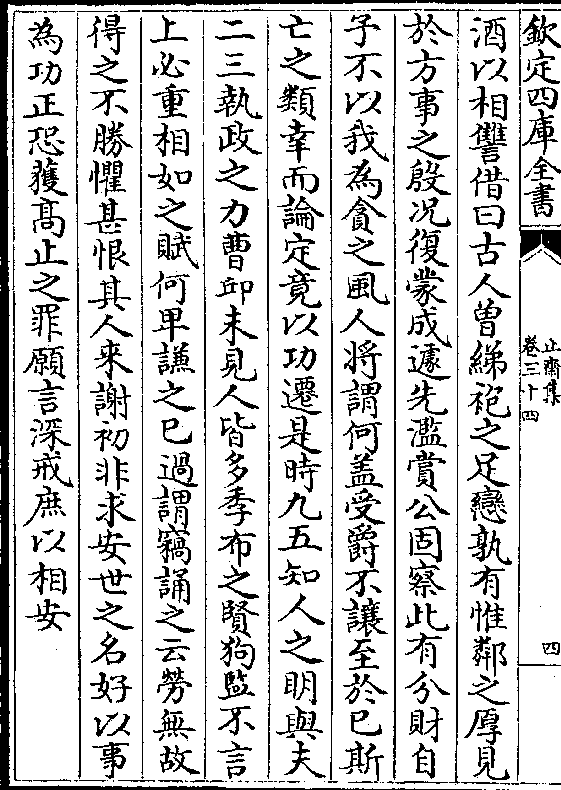 欽定四庫全書
止齋集
卷三十四
四
酒以相讐借曰古人曾綈袍之足戀孰有惟鄰之厚見
於方事之殷况復蒙成遽先濫賞公固察此有分財自
予不以我為貪之風人將謂何盖受爵不讓至於已斯
亡之類幸而論定竟以功遷是時九五知人之明與夫
二三執政之力曹邱未見人皆多季布之賢狗監不言
上必重相如之賦何卑謙之已過謂竊誦之云勞無故
得之不勝懼甚恨其人來謝初非求安世之名好以事
為功正恐獲髙止之罪願言深戒庶以相安